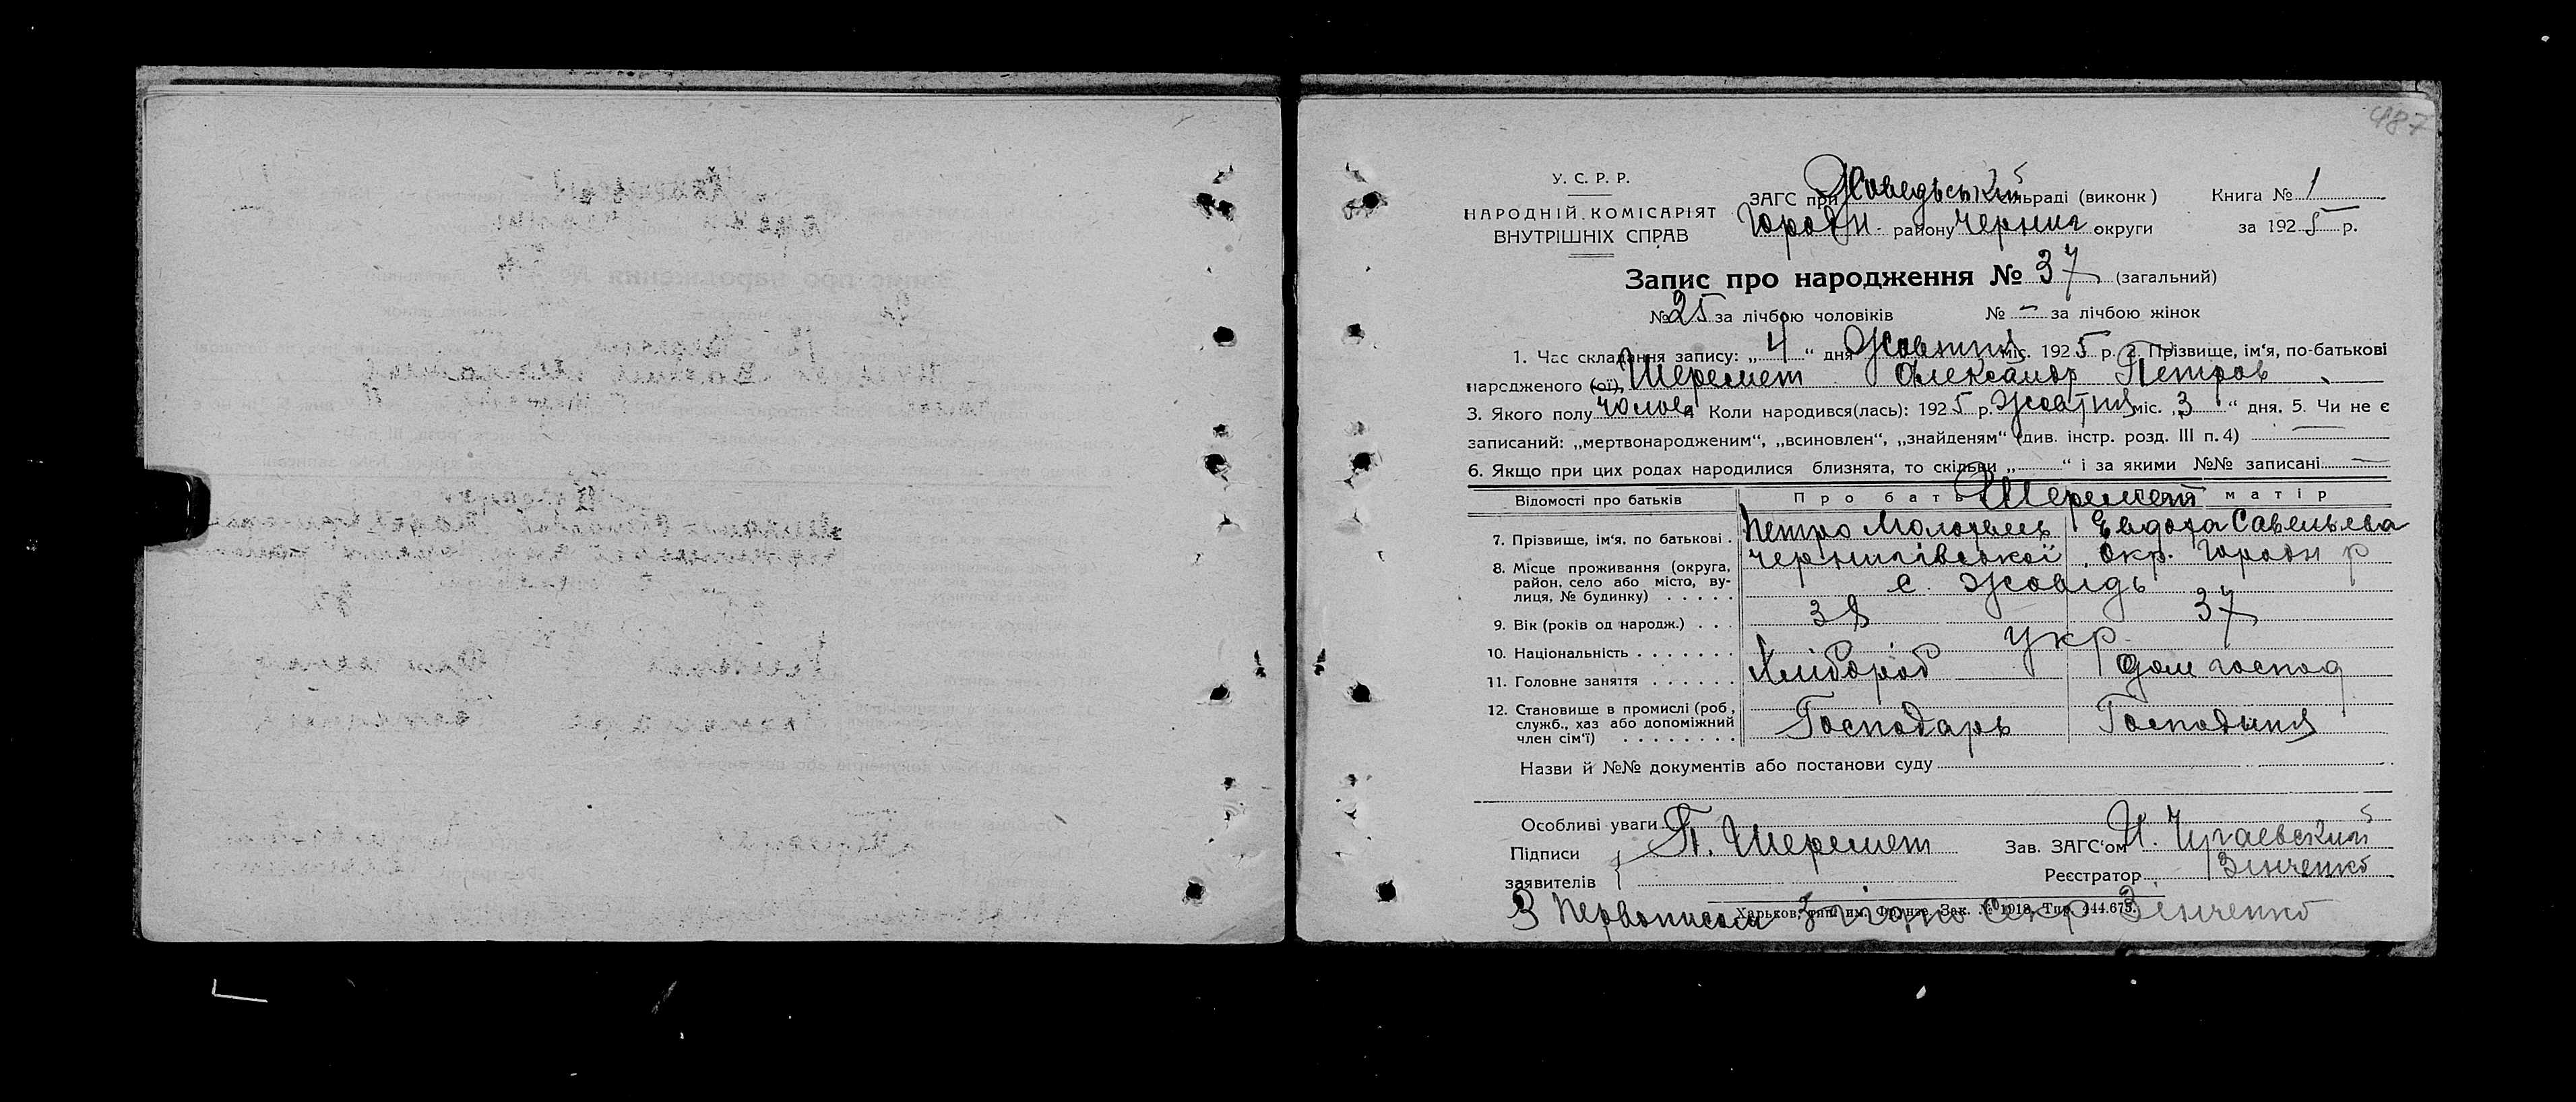 487
У. С. Р. Р.
НАРОДНІЙ КОМІСАРІЯТ
ВНУТРІШНІХ СПРАВ
ЗАГС при Жоведський сільраді (виконк)
Городн. району Черниг округи
Книга № 1
за 1925 р.
Запис про народження № 37 (загальний)
№ 25 за лічбою чоловіків № – за лічбою жінок
1. Час складання запису: „4“ дня Жовтня міс. 1925 р. 2. Прізвище, ім'я, по-батькові
народженого (ої) Шеремет Олександр Петров
3. Якого полу чолов. Коли народився(лась): 1925 р. Жовтня міс. „3“ дня. 5. Чи не є
записаний: „мертвонародженим“, „всиновлен“, „знайденям“ (див. інстр. розд. III п. 4) —
6. Якщо при цих родах народилися близнята, то скільки „ “ і за якими №№ записані —
Відомості про батьків Про батька Шеремет матір
7. Прізвище, ім'я, по батькові . Петро Евдоха Савельева
8. Місце проживання (округа, район, село або місто, вулиця, № будинку) . . . . . Чернигівської окр. Городн р
с. Жовідь
9. Вік (років од народж.) . . . 38 37
10. Національність . . . . . . . Укр
11. Головне заняття . . . . . . Хлібороб Дом господ
12. Становище в промислі (роб., служб., хаз або допоміжний член сім'ї) . . . . . . . . Господарь Господиня
Назви й №№ документів або постанови суду
Особливі уваги
Підписи заявителів П. Шеремет
Зав. ЗАГС'ом Чугаевский
Реєстратор Зінченко
Харьков, тип. им. Фрунзе. Зак. № 1018. Тир. 444.675.
З Первописом згідно Секр Зінченко